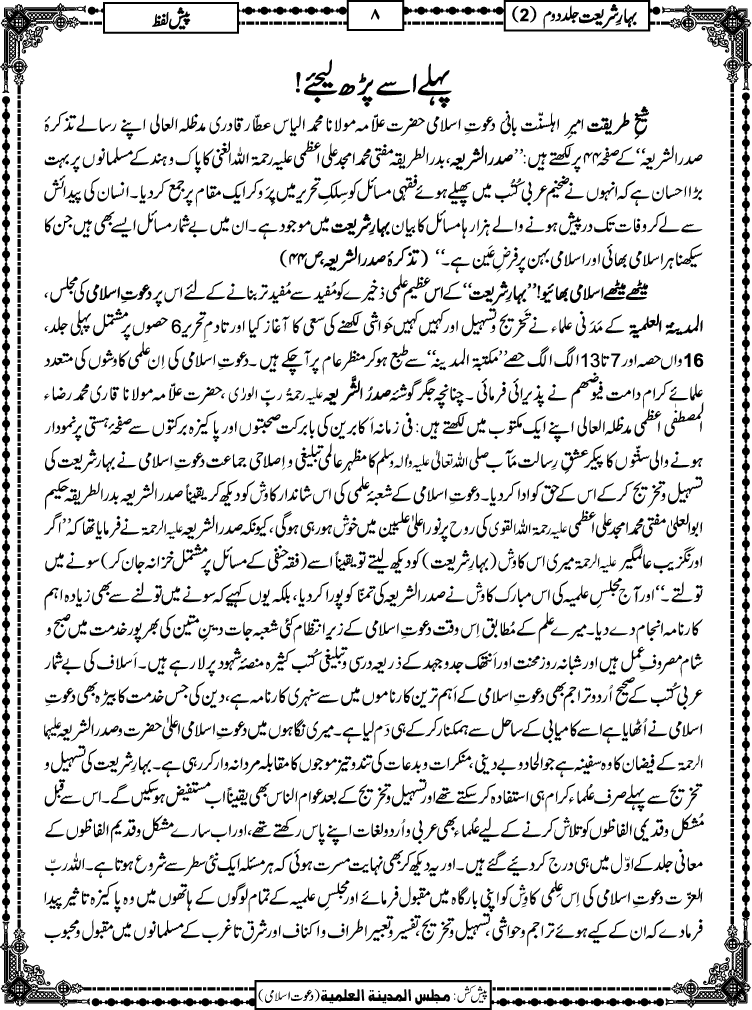 بہارِ شریعت جلد دوم (2)
۸
پیش لفظ
پہلے اسے پڑھ لیجئے!
شیخِ طریقت امیرِ اہلسنّت بانیٔ دعوتِ اسلامی حضرت علّامہ مولانا محمد الیاس عطّار قادری مدظلہ العالی اپنے رسالے تذکرۂ
صدر الشریعہ‘‘ کے صفحہ ۴۴ پر لکھتے ہیں: ’’صدر الشریعہ، بدر الطریقہ مفتی محمد امجد علی اعظمی علیہ رحمۃ اللہ الغنی کا پاک و ہند کے مسلمانوں پر بہت
بڑا احسان ہے کہ انہوں نے ضخیم عربی کُتُب میں پھیلے ہوئے فقہی مسائل کو سِلکِ تحریر میں پِرو کر ایک مقام پر جمع کر دیا۔ انسان کی پیدائش
سے لے کر وفات تک درپیش ہونے والے ہزارہا مسائل کا بیان بہارِ شریعت میں موجود ہے۔ ان میں بے شمار مسائل ایسے بھی ہیں جن کا
سیکھنا ہر اسلامی بھائی اور اسلامی بہن پر فرضِ عَین ہے۔‘‘ (تذکرۂ صدر الشریعہ ص ۴۴)
میٹھے میٹھے اسلامی بھائیو! ’’بہارِ شریعت‘‘ کے اس عظیم علمی ذخیرے کو مُفید سے مُفید تر بنانے کے لئے اس پر دعوتِ اسلامی کی مجلس،
المدینۃ العلمیۃ کے مَدَنی علماء نے تَخریج و تسہیل اور کہیں کہیں حَواشی لکھنے کی سعی کا آغاز کیا اور تادمِ تحریر 6 حصوں پر مشتمل پہلی جلد،
16 واں حصہ اور 7 تا 13 الگ الگ حصے ’’مکتبۃ المدینہ‘‘ سے طبع ہو کر منظرِ عام پر آچکے ہیں۔ دعوتِ اسلامی کی اِن علمی کاوشوں کی متعدد
علمائے کرام دامت فیوضھم نے پذیرائی فرمائی۔ چنانچہ جگر گوشۂ صدرُ الشَّریعہ علیہ رحمۃُ ربِّ الورٰی، حضرت علّامہ مولانا قاری محمد رضاء
المصطفٰی اعظمی مدظلہ العالی اپنے ایک مکتوب میں لکھتے ہیں: فی زمانہ اکابرین کی بابرکت صحبتوں اور پاکیزہ برکتوں سے صفحۂ ہستی پر نمودار
ہونے والی سنّتوں کا پیکر عشقِ رسالت مآب صلی اللہ تعالیٰ علیہ والہٖ وسلم کا مظہر عالمی تبلیغی و اِصلاحی جماعت دعوتِ اسلامی نے بہارِ شریعت کی
تسہیل و تخریج کر کے اس کے حق کو ادا کر دیا۔ دعوتِ اسلامی کے شعبۂ علمی کی اس شاندار کاوش کو دیکھ کر یقیناً صدر الشریعہ بدر الطریقہ حکیم
ابو العلیٰ مفتی محمد امجد علی اعظمی علیہ رحمۃ اللہ القوی کی روح پر نور اعلیٰ علیین میں خوش ہو رہی ہوگی، کیونکہ صدر الشریعہ علیہ الرحمۃ نے فرمایا تھا کہ ’’اگر
اورنگزیب عالمگیر علیہ الرحمۃ میری اس کاوش (بہارِ شریعت) کو دیکھ لیتے تو یقیناً اسے (فقہ حنفی کے مسائل پر مشتمل خزانہ جان کر) سونے میں
تولتے۔‘‘ اور آج مجلسِ علمیہ کی اس مبارک کاوش نے صدر الشریعہ کی تمنّا کو پورا کر دیا، بلکہ یوں کہیے کہ سونے میں تولنے سے بھی زیادہ اہم
کارنامہ انجام دے دیا۔ میرے علم کے مُطابق اس وقت دعوتِ اسلامی کے زیرِ انتظام کئی شعبہ جات دینِ متین کی بھرپور خدمت میں صبح و
شام مصروفِ عمل ہیں اور شبانہ روز محنت اور اَنتھک جدوجہد کے ذریعہ درسی و تبلیغی کُتبِ کثیرہ منصّۂ شہود پر لا رہے ہیں۔ اَسلاف کی بے شمار
عربی کتب کے صحیح اُردو تراجم بھی دعوتِ اسلامی کے اَہم ترین کارناموں میں سے سنہری کارنامہ ہے، دین کی جس خدمت کا بیڑہ بھی دعوتِ
اسلامی نے اُٹھایا ہے اسے کامیابی کے ساحل سے ہمکنار کر کے ہی دَم لیا ہے۔ میری نگاہوں میں دعوتِ اسلامی اعلیٰ حضرت و صدر الشریعہ علیہما
الرحمۃ کے فیضان کا وہ سفینہ ہے جو الحاد و بے دینی، منکرات و بدعات کی تند و تیز موجوں کا مقابلہ مردانہ وار کر رہی ہے۔ بہارِ شریعت کی تسہیل و
تخریج سے پہلے صرف عُلماء کرام ہی استفادہ کر سکتے تھے اور تسہیل و تخریج کے بعد عوام الناس بھی یقیناً اب مستفیض ہو سکیں گے۔ اس سے قبل
مُشکل و قدیمی الفاظوں کو تلاش کرنے کے لیے علماء بھی عربی و اُردو لغات اپنے پاس رکھتے تھے، اور اب سارے مشکل و قدیم الفاظوں کے
معانی جلد کے اوّل میں ہی درج کر دیئے گئے ہیں۔ اور یہ دیکھ کر بھی نہایت مسرت ہوئی کہ ہر مسئلہ ایک نئی سطر سے شروع ہوتا ہے۔ اللہ ربّ
العزّت دعوتِ اسلامی کی اِس عِلمی کاوِش کو اپنی بارگاہ میں مقبول فرمائے اور مجلسِ علمیہ کے تمام لوگوں کے ہاتھوں میں وہ پاکیزہ تاثیر پیدا
فرما دے کہ ان کے کیے ہوئے تراجم و حواشی، تسہیل و تخریج، تفسیر و تعبیر اطراف و اکناف اور شرق تا غرب کے مسلمانوں میں مقبول و محبوب
پیش کش: مجلس المدینۃ العلمیۃ (دعوتِ اسلامی)